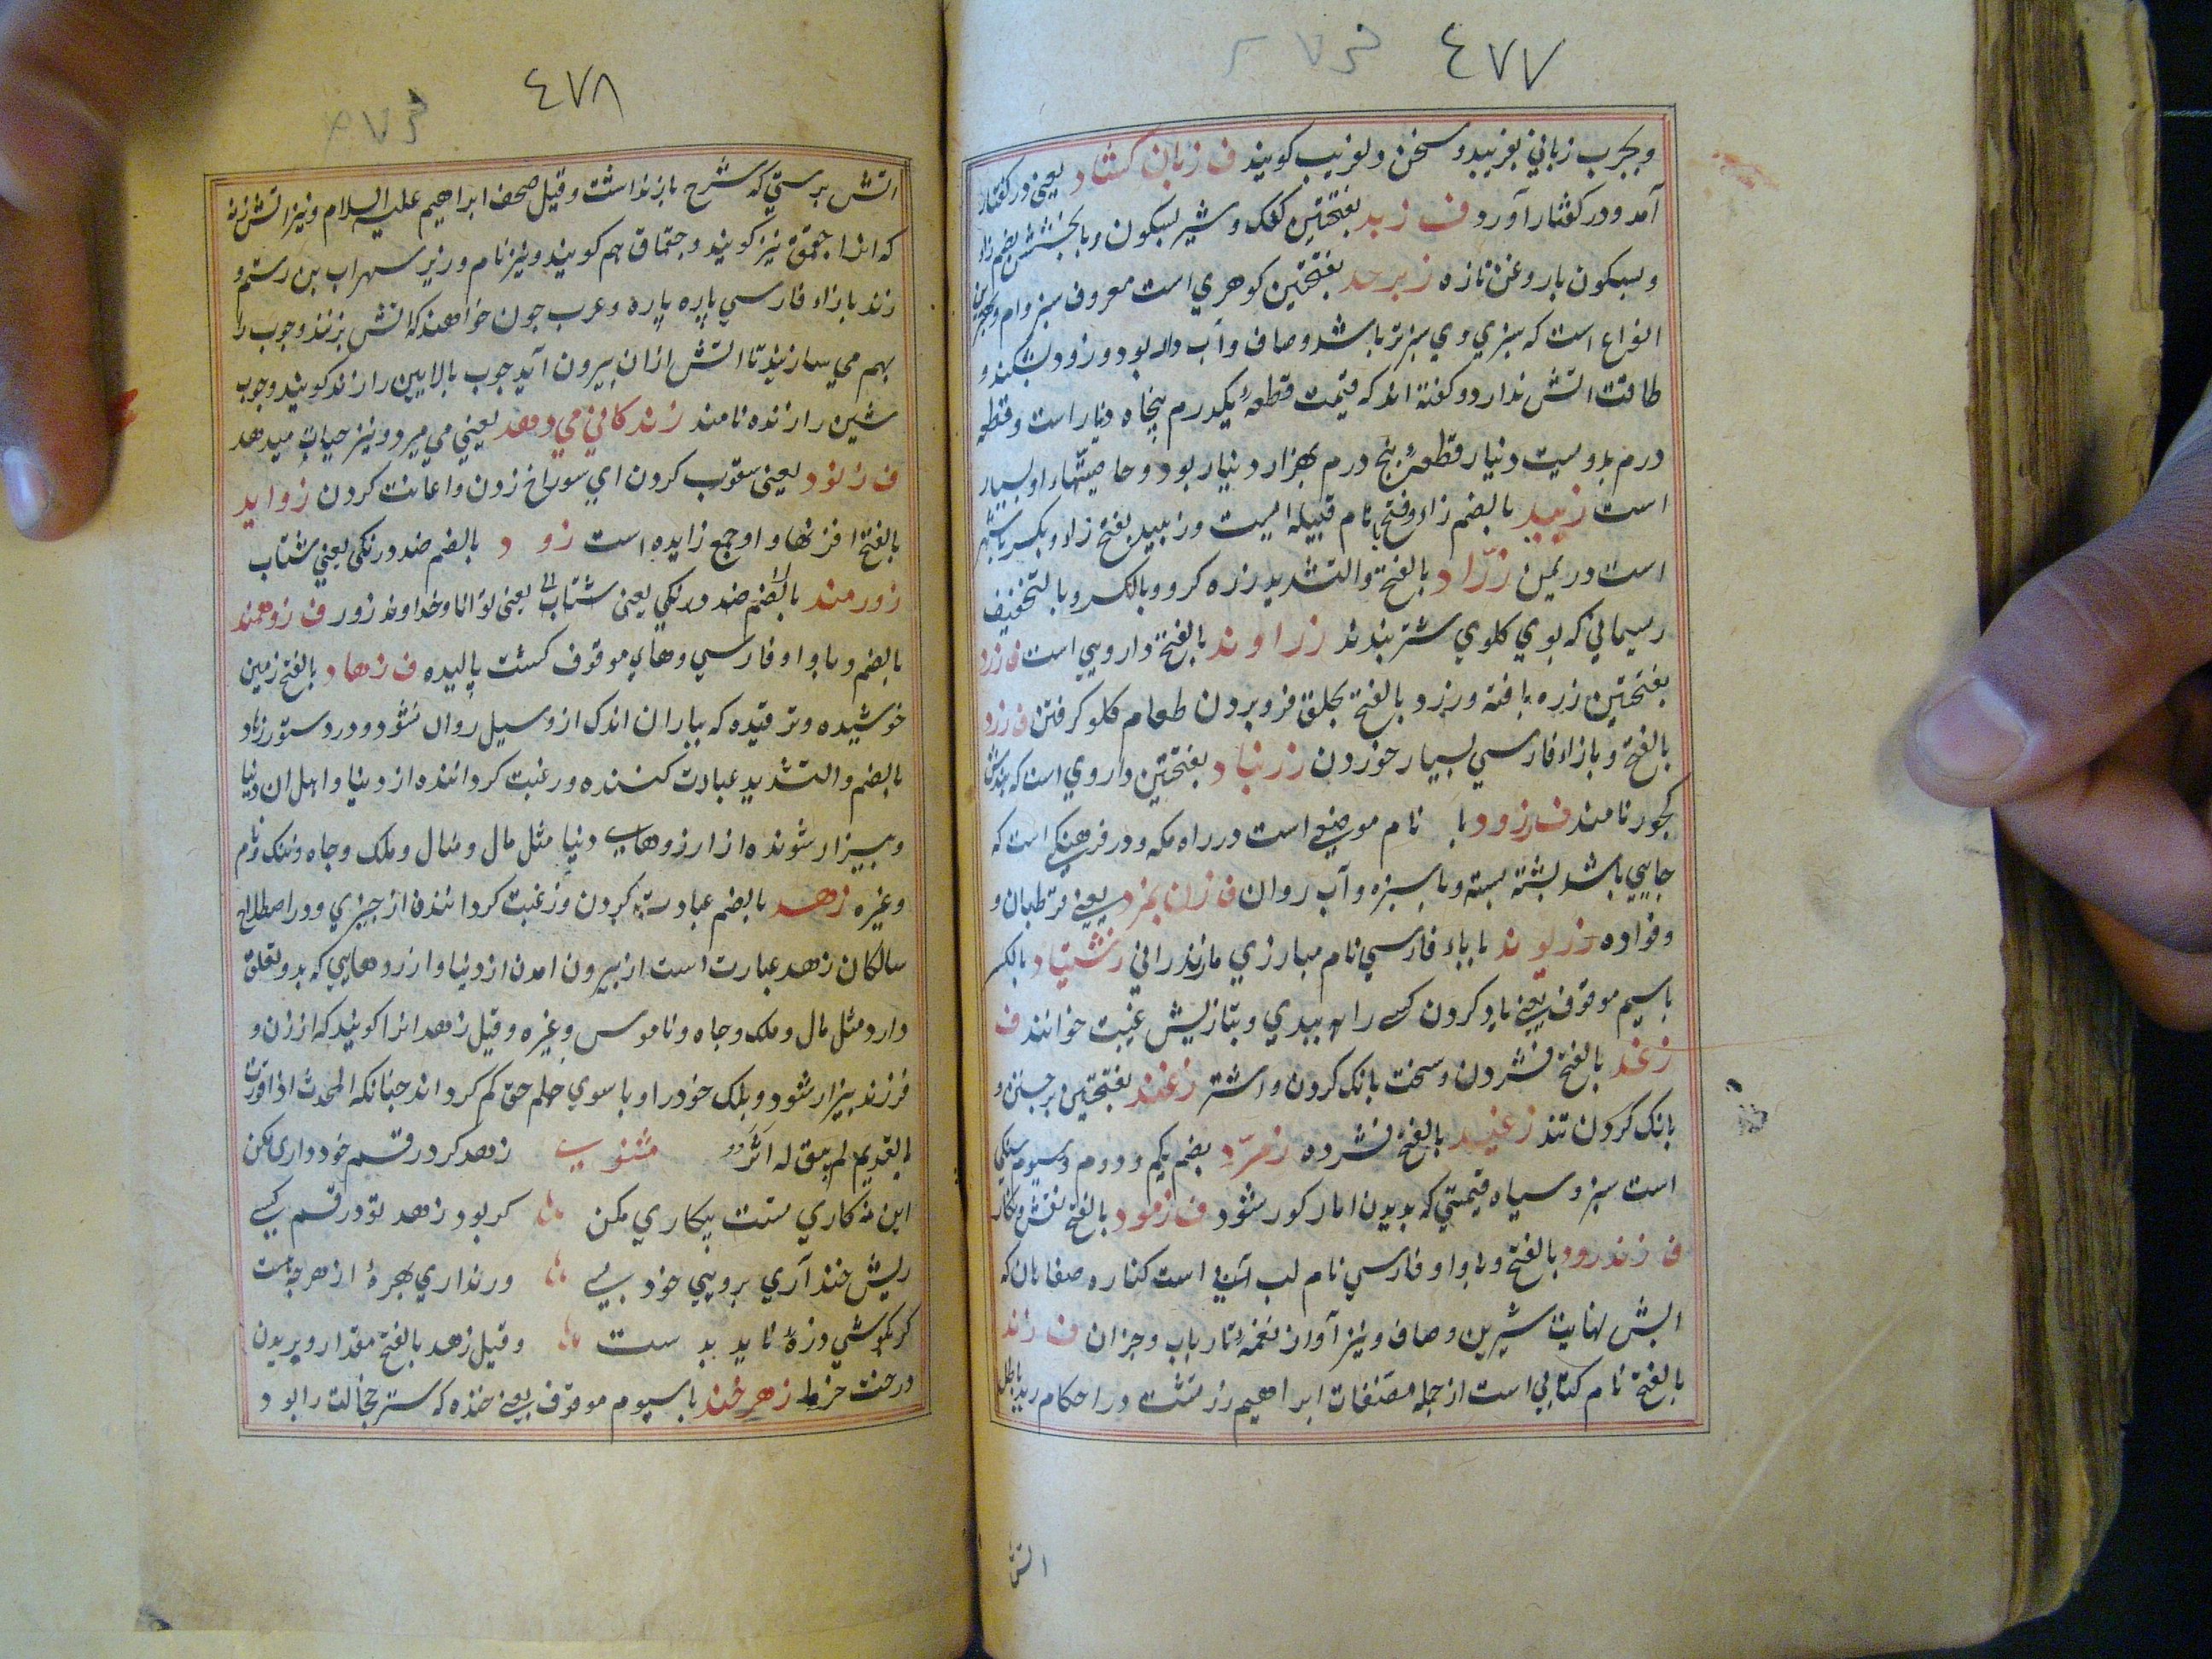 ٤٧٧
و بچرب زباني بفريبد و سخن دلفريب كويند ف زبان كشاد يعني در كفتار
آمد و در كفتار آورد ف زبد بفتحتين كفك و شير بسكون و بالخشش بضم زاد
و بسكون بار و غن تازه زبرجد بفتحتين كوهري است معروف سبز وام و بهترين
انواع است كه سبزي وي سبزتر باشد و صاف و آب دار بود و زود بشكند و
طاقت اتش ندارد و كفته اند كه قيمت قطعهٔ يكدرم پنجاه دينار است و قطعه
درم بدويست دينار قطعهٔ پنج درم بهزار دينار بود و خاصيتهاء او بسيار
است زبيد بالضم زاد و فتح با نام قبيله ايست و زبيد بفتح زاد و بكسر با شهر
است در يمن زرّاد بالفتح والتشديد زره كر و بالكسر و بالتخفيف
رسيماني كه بوي كلوي شتر بندند زراوند بالفتح دارويي است ف زرد
بفتحتين زره بافته و زرد بالفتح بحلق فرو بردن طعام كلو كرفتن ف زرد
بالفتح و بازاء فارسي بسيار خوردن زرنباد بفتحتين داروي است كه بهندش
كجور نامند ف زرود با نام موضعي است در راه مكه و در فرهنكي است كه
جايي باشد پشته پشته و با سبزه و آب روان ف زن بمزد يعني قرتطبان و
و قواده زريوند با باء فارسي نام مبارزي مازندراني زشتياد بالكسر
باسيم موقوف يعني ياد كردن كسي را به بدي و بتازيش غيبت خوانند ف
زغند بالفتح فشردن و سخت بانك كردن و اشتر زغند بفتحتين برجستن و
بانك كردن تند زغيد بالفتح فشرده زمرّد بضم يكم و دوم و سيوم سنكي
است سبز و سياه قيمتي كه بديدن ا مار كور شود ف زمود بالفتح نقش و نكار
ف زندرود بالفتح و با واو فارسي نام لب آبي است كناره صفاهان كه
ابش نهايت شيرين و صاف و نيز آواز نغمهٔ تار باب و جز ان ف زند
بالفتح نام كتابي است از جمله مصنفات ابراهيم زرتشت در احكام دين باطل
اتش
٤٧٨
اتش برستي كه شرح بازند است و قيل صحف ابراهيم عليه السلام و نيز اتش زنه
كه انرا چقمق نيز كويند و چقماق هم كويند و نيز نام وزير سهراب بن رستم و
زند بازاء فارسي پاره پاره و عرب چون خواهند كه اتش بزنند دو چوب را
بهم مي سازنند تا اتش ازان بيرون آيد چوب بالايين را زند كويند و چوب
شين را زنده نامند زند كاني مي دهد يعني مي ميرد و نيز حيات ميدهد
ف زنود يعني سقوب كردن اي سوراخ زدن و اعانت كردن زوايد
بالفتح افزنها و او جمع زايده است زود بالضم ضد درنكي يعني شتاب
زورمند بالضم ضد درنكي يعني شتابي يعني توانا و خداوند زور ف زوهمند
بالضم و با واو فارسي و هاي موقوف كشت پاليده ف زهاد بالفتح زمين
خوشيده و ترقيده كه بباران اندك ازو سيل روان شود و در دستور زهاد
بالضم والتشديد عبادت كننده و رغبت كرداننده از دنيا و اهل ان دنيا
و بيزار شونده از ارزوهاي دنيا مثل مال و منال و ملك و جاه و ننك و نام
و غيره زهد بالضم عبادت كردن و رغبت كردانندن از چيزي و در اصطلاح
سالكان زهد عبارت است از بيرون امدن از دنيا و ارزوهايي كه بدو تعلق
دارد مثل مال و ملك و جاه و ناموس و غيره و قيل زهد انرا كويند كه از زن و
فرزند بيزار شود و بلك خود را و با سوي حلم حق كم كرداند چنانكه المحدث اذا قورن
بالقديم لم يبق له اثر مثنوي زهد كرد رقسم خود داري مكن
اين نه كاري ستت بيكاري مكن كر بود زهد تو در قسم كسي
ريش خند آري بر روي خود بسي ور نداري بهرهٔ از هر چه هست
كر بكوشي ذرهٔ نايد بدست و قيل زهد بالفتح مقدار و بريدن
درخت خرما زهرخند با سيوم موقوف يعني خنده كه ستر خجالت را بود